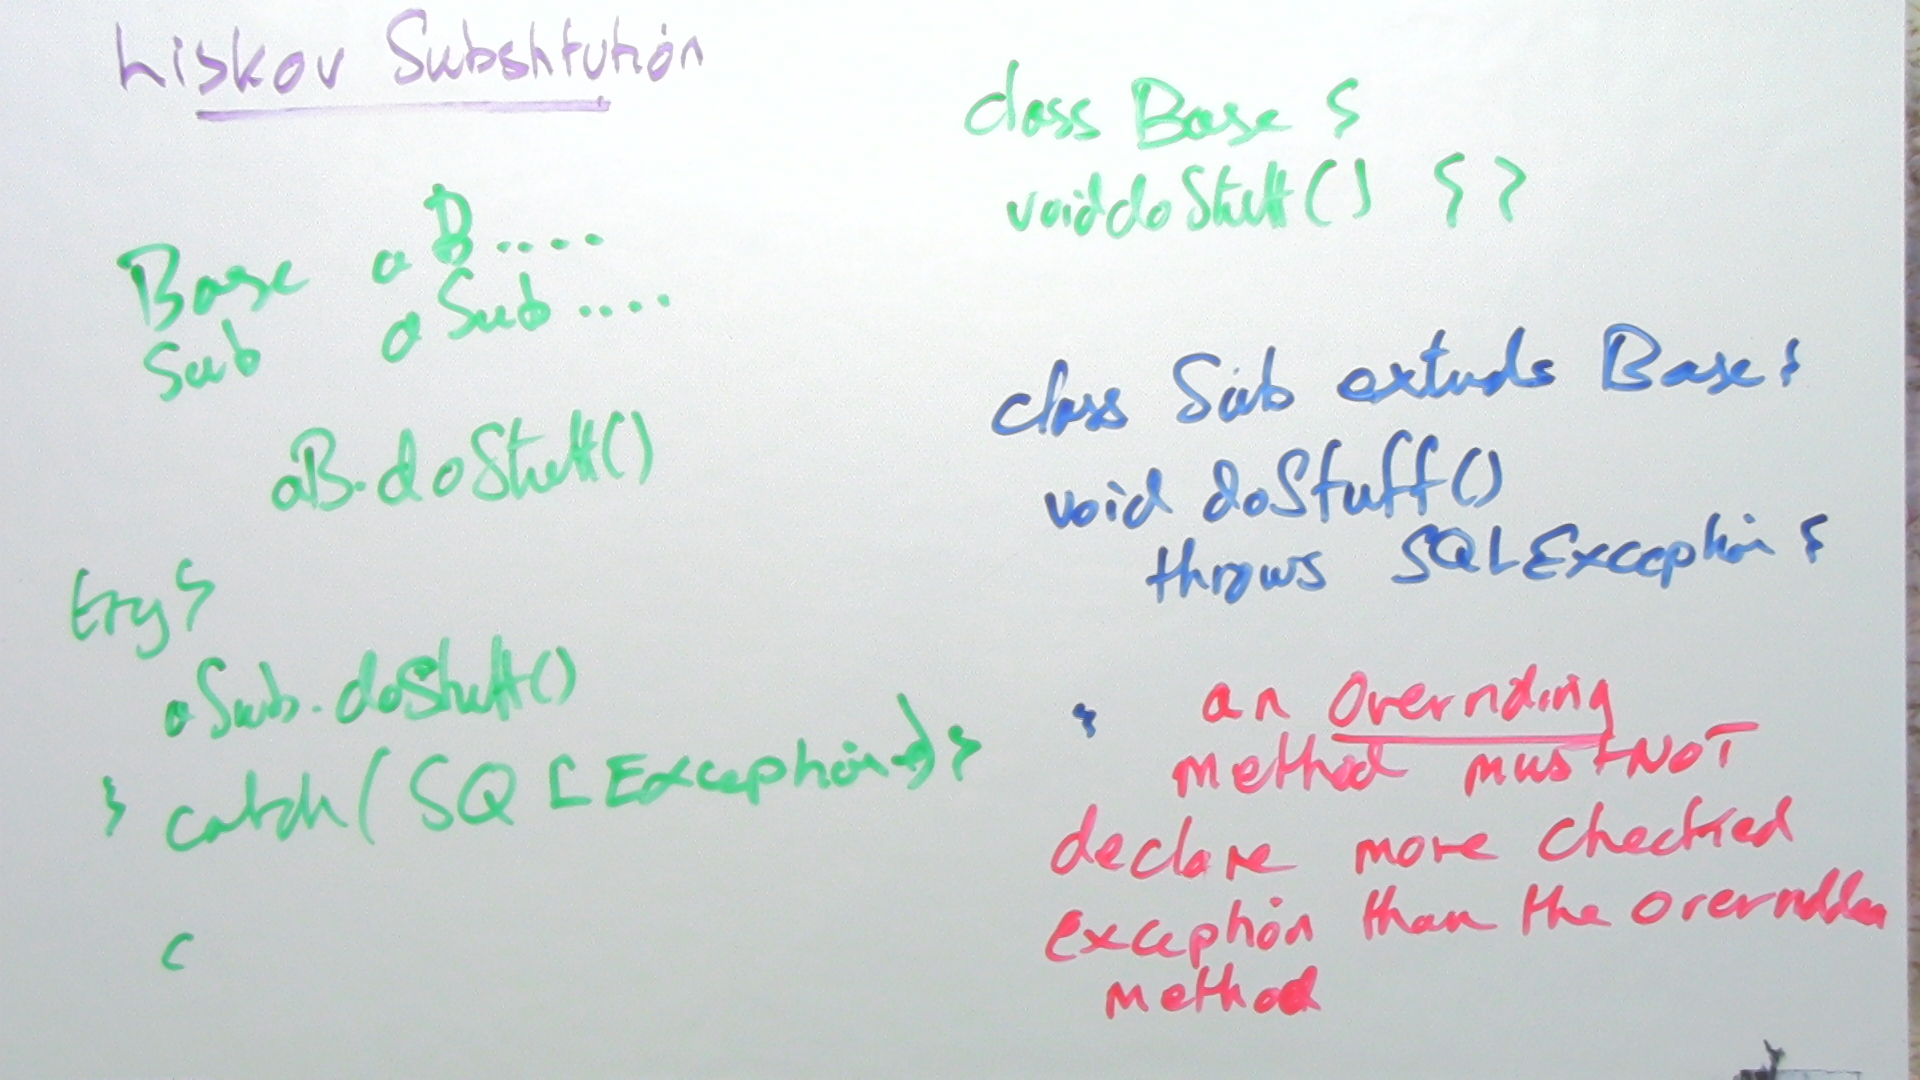 Liskov Substitution
Base aB....
Sub aSub....
aB.doStuff()
try {
aSub.doStuff()
} catch (SQLException e) {
c
class Base {
void doStuff() { }
class Sub extends Base {
void doStuff()
throws SQLException {
}
an overriding
method must NOT
declare more checked
exception than the overridden
method